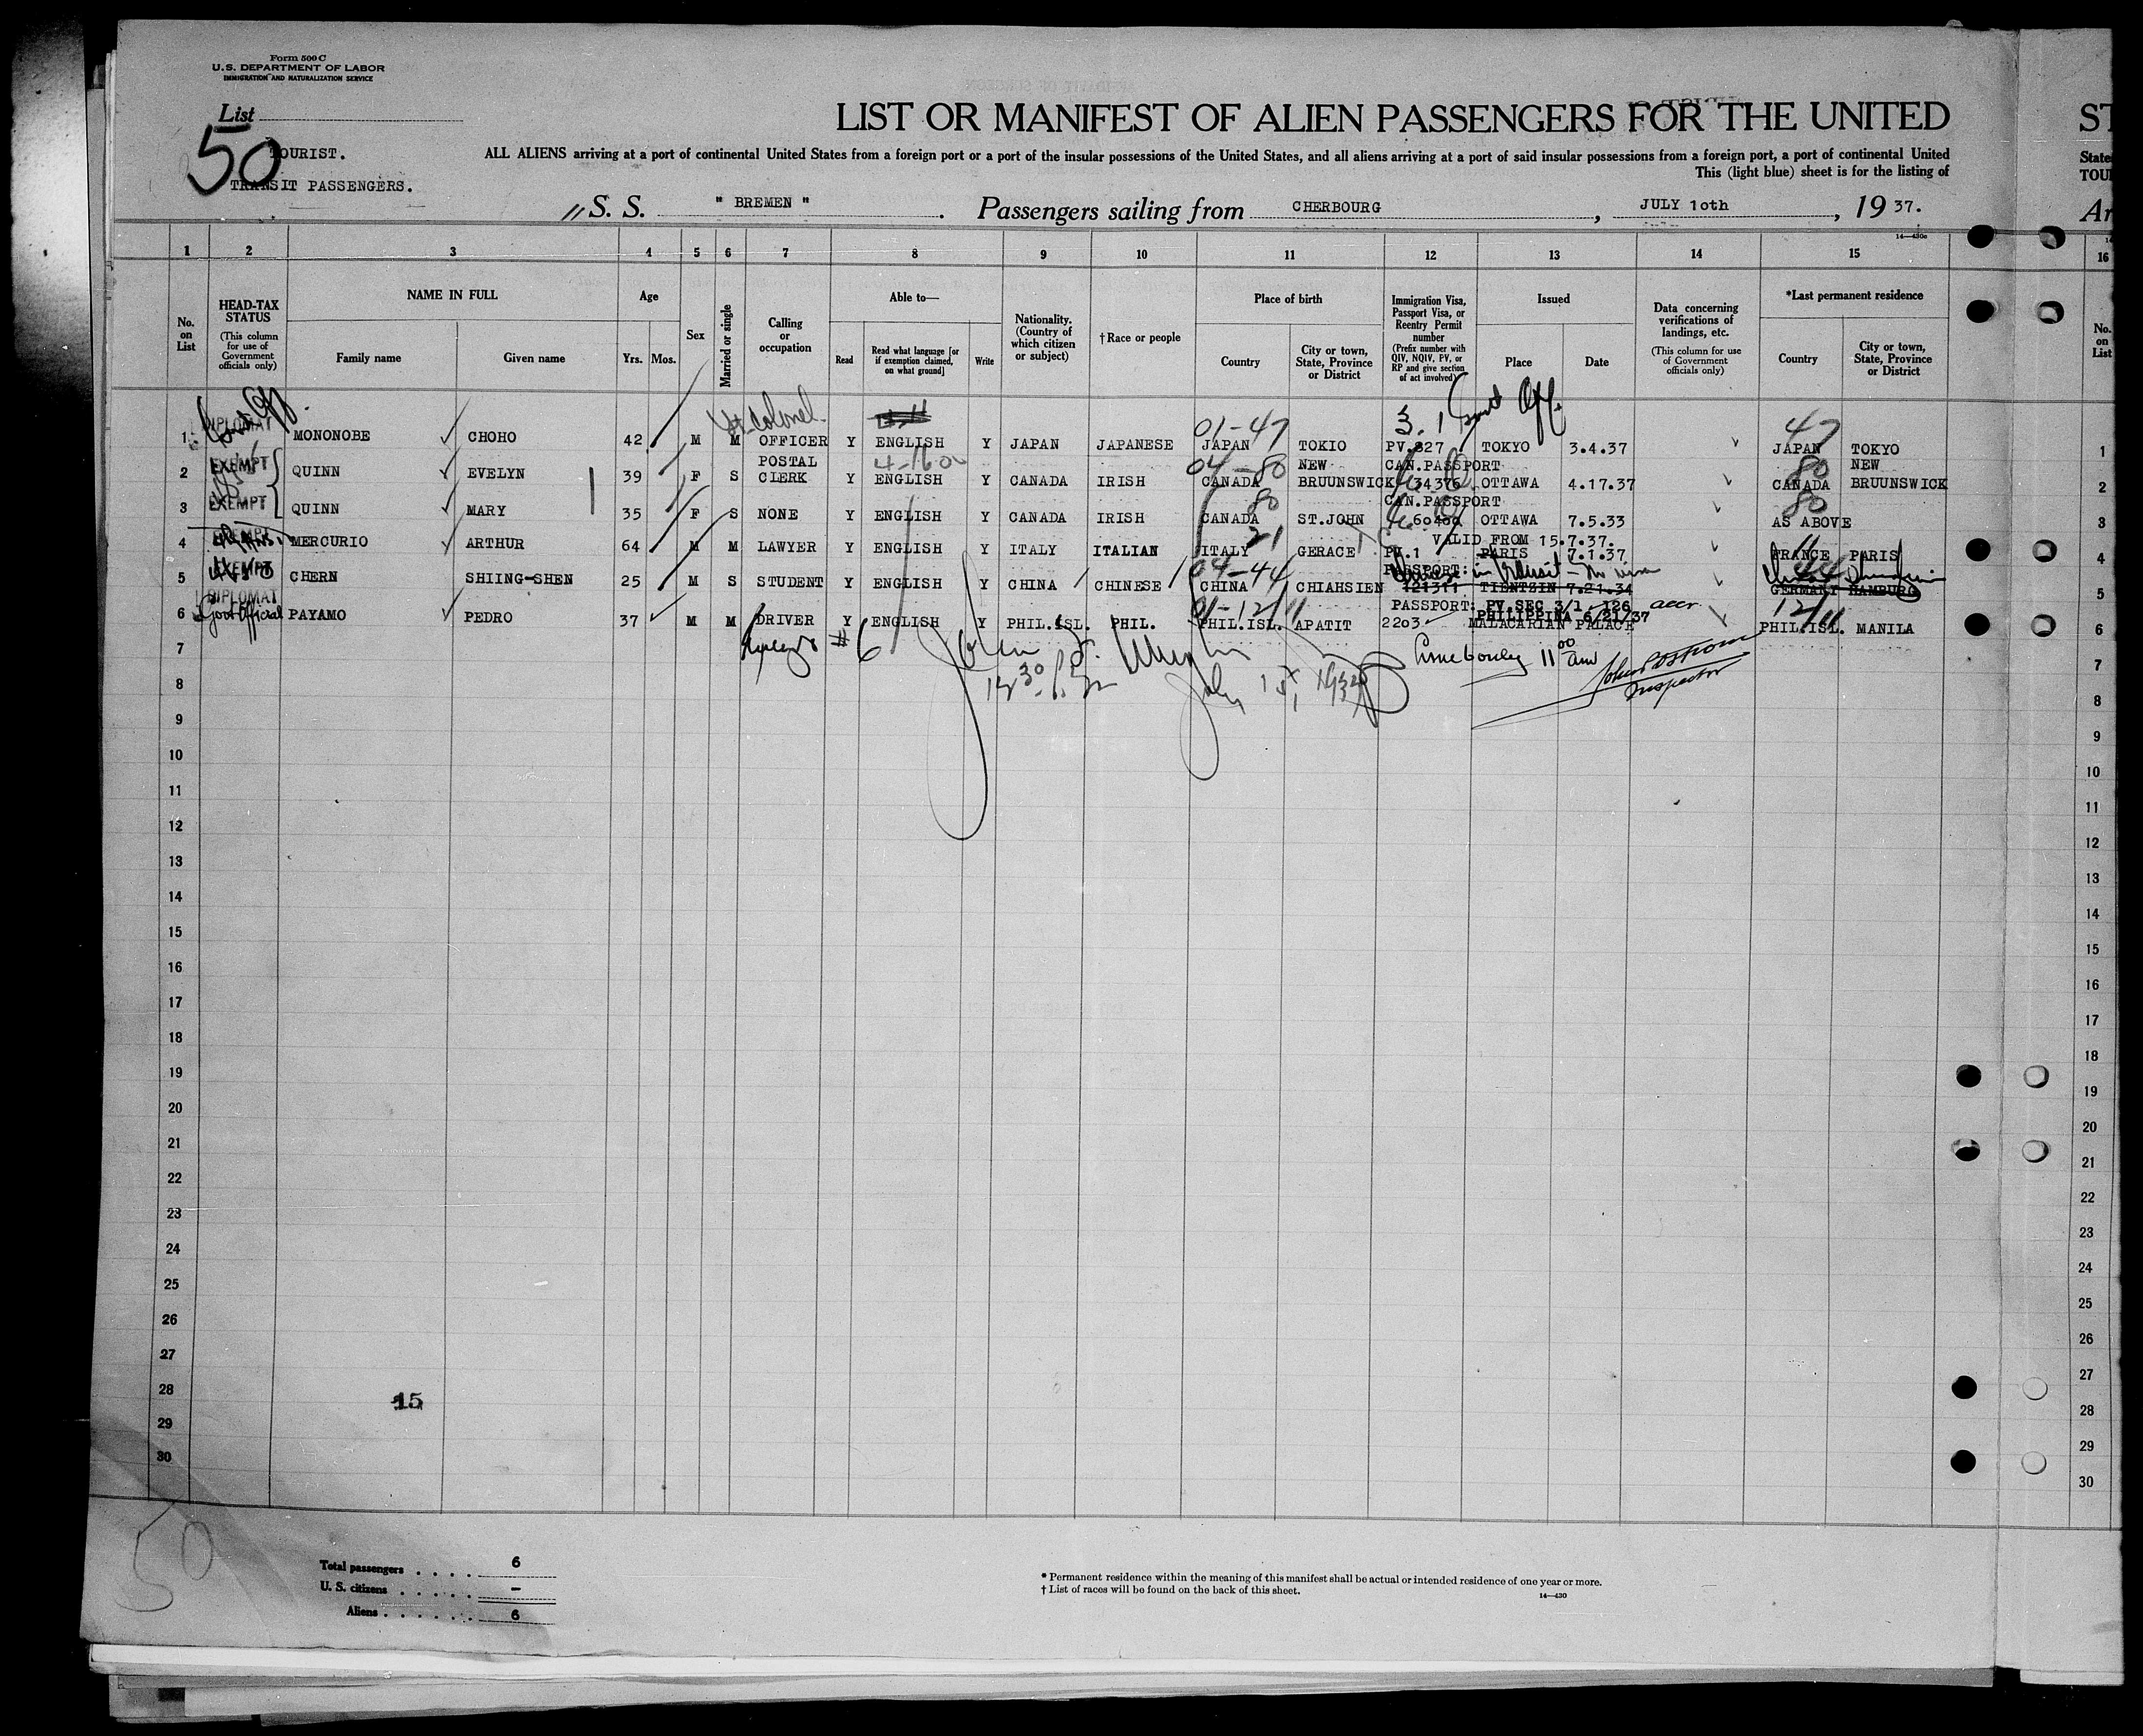 Form 500 C
U.S. DEPARTMENT OF LABOR
IMMIGRATION AND NATURALIZATION SERVICE
List
50
TOURIST.
TRANSIT PASSENGERS.
LIST OR MANIFEST OF ALIEN PASSENGERS FOR THE UNITED
ST
ALL ALIENS arriving at a port of continental United States from a foreign port or a port of the insular possessions of the United States, and all aliens arriving at a port of said insular possessions from a foreign port, a port of continental United
State
This (light blue) sheet is for the listing of
TOU
S. S. " BREMEN " . Passengers sailing from CHERBOURG , JULY 1oth , 19 37.
Ar
14—430c
1 2 3 4 5 6 7 8 9 10 11 12 13 14 15 16
No. on List
HEAD-TAX STATUS
(This column for use of Government officials only)
NAME IN FULL
Family name
Given name
Age
Yrs.
Mos.
Sex
Married or single
Calling or occupation
Able to—
Read
Read what language [or if exemption claimed, on what ground]
Write
Nationality. (Country of which citizen or subject)
†Race or people
Place of birth
Country
City or town, State, Province or District
Immigration Visa, Passport Visa, or Reentry Permit number
(Prefix number with QIV, NQIV, PV, or RP and give section of act involved)
Issued
Place
Date
Data concerning verifications of landings, etc.
(This column for use of Government officials only)
*Last permanent residence
Country
City or town, State, Province or District
No. on List
Lt. Colonel
3.1 Govt Off.
01-47
47
1 DIPLOMAT MONONOBE CHOHO 42 M M OFFICER Y ENGLISH Y JAPAN JAPANESE JAPAN TOKIO PV.827 TOKYO 3.4.37 JAPAN TOKYO 1
POSTAL 04-80 NEW CAN.PASSPORT 80 NEW
2 EXEMPT QUINN EVELYN 39 F S CLERK Y ENGLISH Y CANADA IRISH CANADA BRUUNSWICK 34376 OTTAWA 4.17.37 CANADA BRUUNSWICK 2
80 CAN.PASSPORT 80
3 EXEMPT QUINN MARY 35 F S NONE Y ENGLISH Y CANADA IRISH CANADA ST.JOHN 60400 OTTAWA 7.5.33 AS ABOVE 3
21 VALID FROM 15.7.37.
4 MERCURIO ARTHUR 64 M M LAWYER Y ENGLISH Y ITALY ITALIAN ITALY GERACE PV.1 PARIS 7.1.37 FRANCE PARIS 4
04-44 PASSPORT: in transit 44
5 EXEMPT CHERN SHIING-SHEN 25 M S STUDENT Y ENGLISH Y CHINA CHINESE CHINA CHIAHSIEN 121311 TIENTZIN 7.21.34 GERMANY HAMBURG 5
DIPLOMAT 01-12/11 PASSPORT: PV.SEC 3/1 126 12/11
6 Govt Official PAYAMO PEDRO 37 M M DRIVER Y ENGLISH Y PHIL.ISL. PHIL. PHIL.ISL. APATIT 2203 PHILIPPINA 6/21/37 MALACARIAN PALACE PHIL.ISL. MANILA 6
7 # 6 11 00 am 7
July 15, 1937
Inspector
8 8
9 9
10 10
11 11
12 12
13 13
14 14
15 15
16 16
17 17
18 18
19 19
20 20
21 21
22 22
23 23
24 24
25 25
26 26
27 27
28 28
15
29 29
30 30
50
Total passengers . . . . 6
U. S. citizens . . . . . –
Aliens . . . . . . 6
* Permanent residence within the meaning of this manifest shall be actual or intended residence of one year or more.
† List of races will be found on the back of this sheet.
14—430